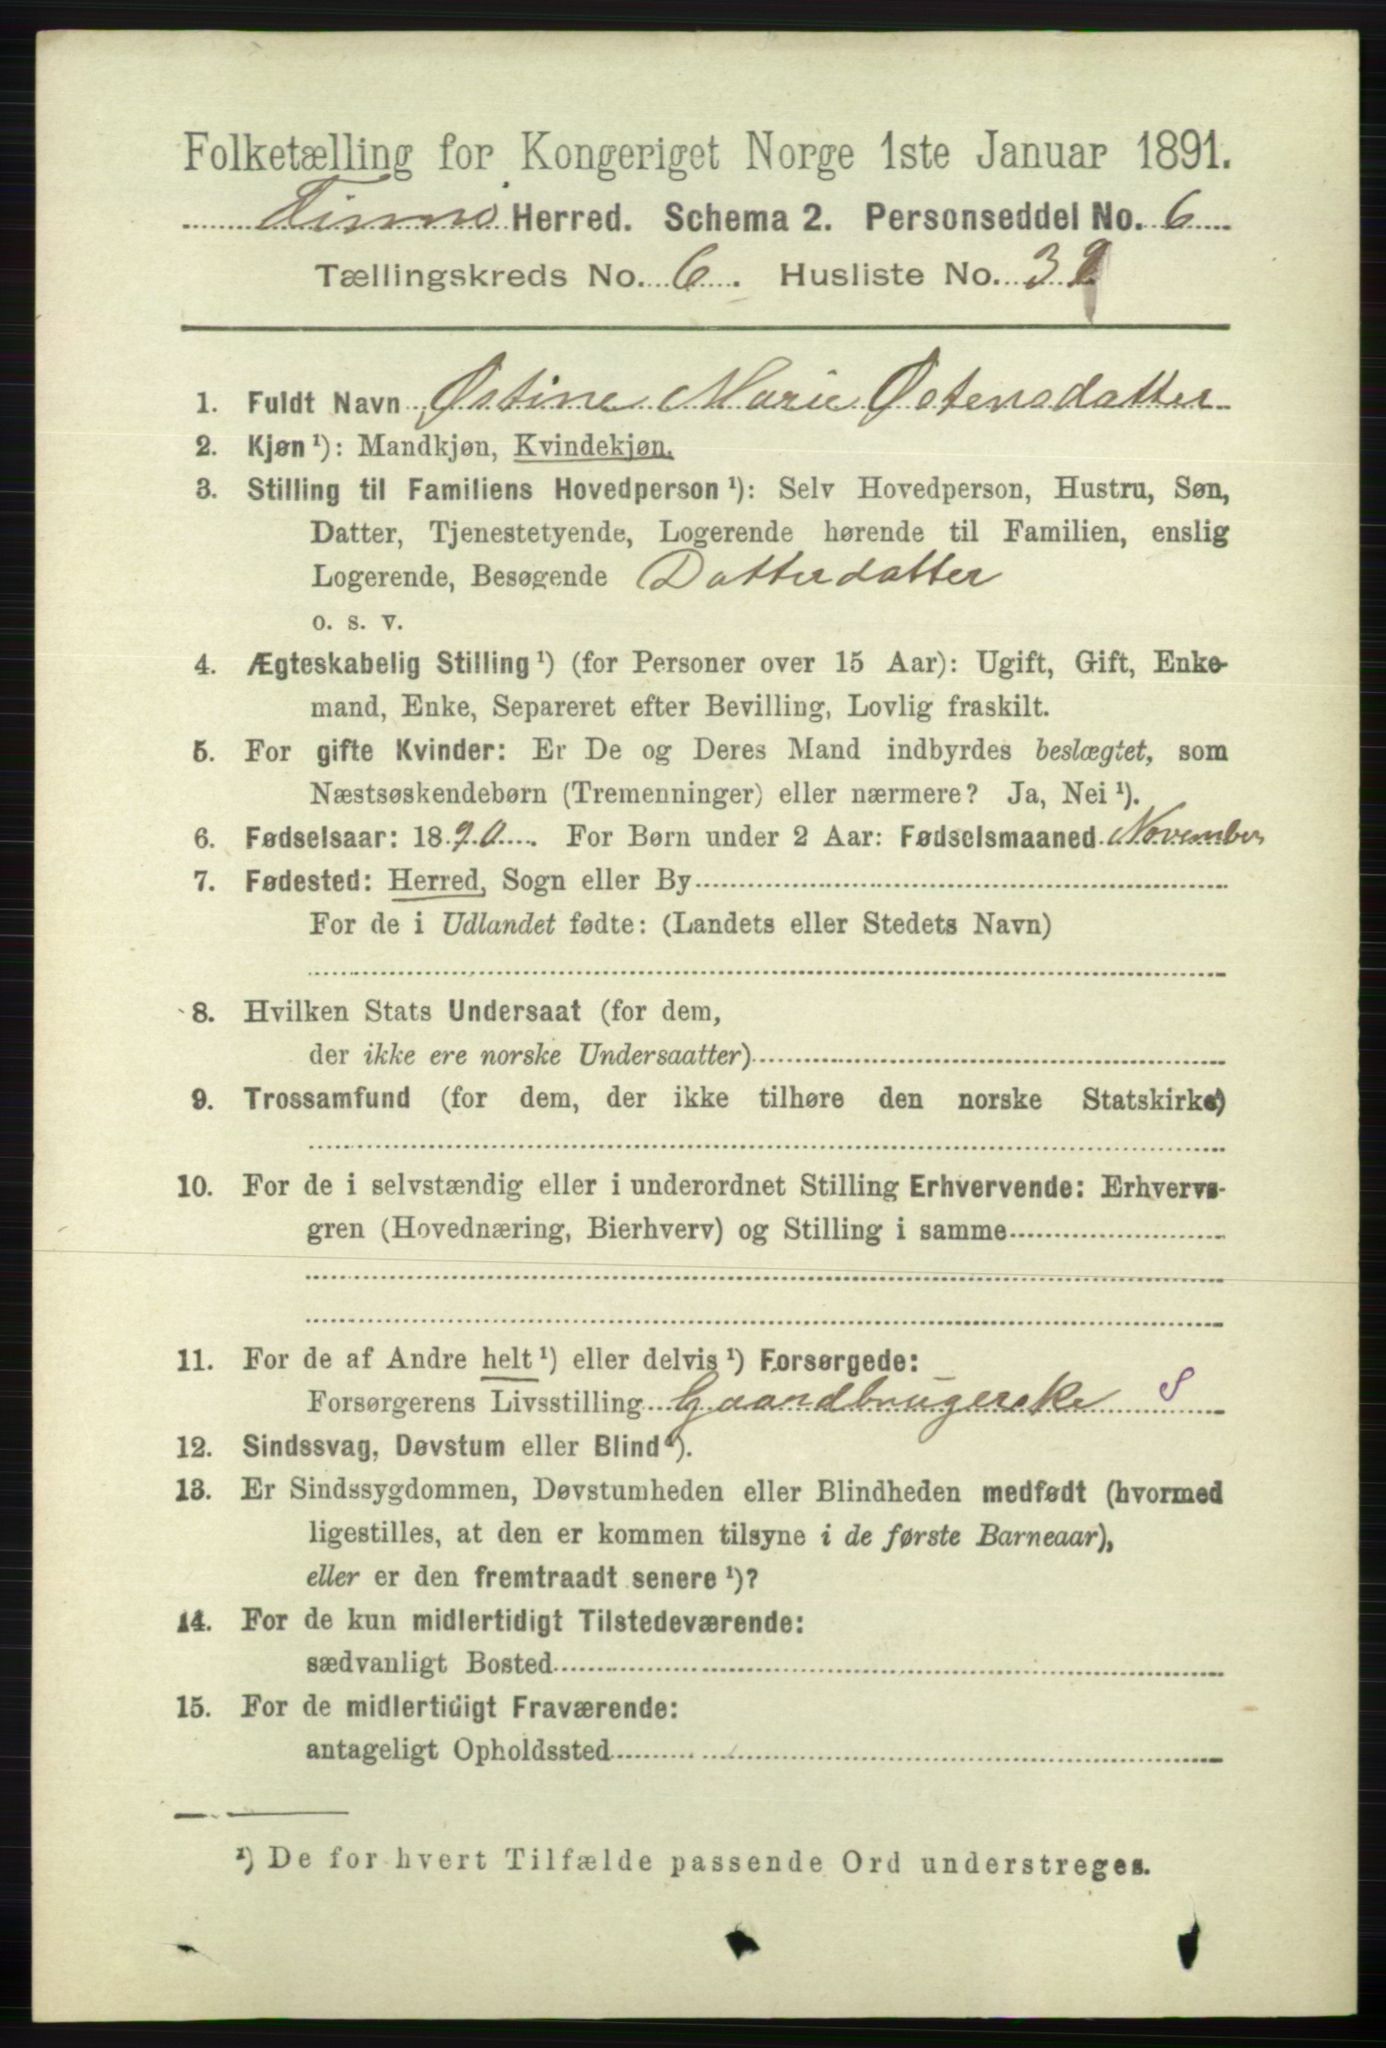 Folketælling for Kongeriget Norge 1ste Januar 1891.
Tinns Herred. Schema 2. Personseddel No. 6
Tællingskreds No. 6. Husliste No. 3
1. Fuldt Navn Østine Marie Østensdatter
2. Kjøn ¹): Mandkjøn, Kvindekjøn.
3. Stilling til Familiens Hovedperson ¹): Selv Hovedperson, Hustru, Søn,
Datter, Tjenestetyende, Logerende hørende til Familien, enslig
Logerende, Besøgende Datterdatter
o. s. v.
4. Ægteskabelig Stilling ¹) (for Personer over 15 Aar): Ugift, Gift, Enke-
mand, Enke, Separeret efter Bevilling, Lovlig fraskilt.
5. For gifte Kvinder: Er De og Deres Mand indbyrdes beslægtet, som
Næstsøskendebørn (Tremenninger) eller nærmere? Ja, Nei ¹).
6. Fødselsaar: 1890. For Børn under 2 Aar: Fødselsmaaned November
7. Fødested: Herred, Sogn eller By
For de i Udlandet fødte: (Landets eller Stedets Navn)
8. Hvilken Stats Undersaat (for dem,
der ikke ere norske Undersaatter)
9. Trossamfund (for dem, der ikke tilhøre den norske Statskirke)
10. For de i selvstændig eller i underordnet Stilling Erhvervende: Erhvervs-
gren (Hovednæring, Bierhverv) og Stilling i samme
11. For de af Andre helt ¹) eller delvis ¹) Forsørgede:
Forsørgerens Livsstilling Gaardbrugerske S
12. Sindssvag, Døvstum eller Blind ¹).
13. Er Sindssygdommen, Døvstumheden eller Blindheden medfødt (hvormed
ligestilles, at den er kommen tilsyne i de første Barneaar),
eller er den fremtraadt senere ¹)?
14. For de kun midlertidigt Tilstedeværende:
sædvanligt Bosted
15. For de midlertidigt Fraværende:
antageligt Opholdssted
¹) De for hvert Tilfælde passende Ord understreges.